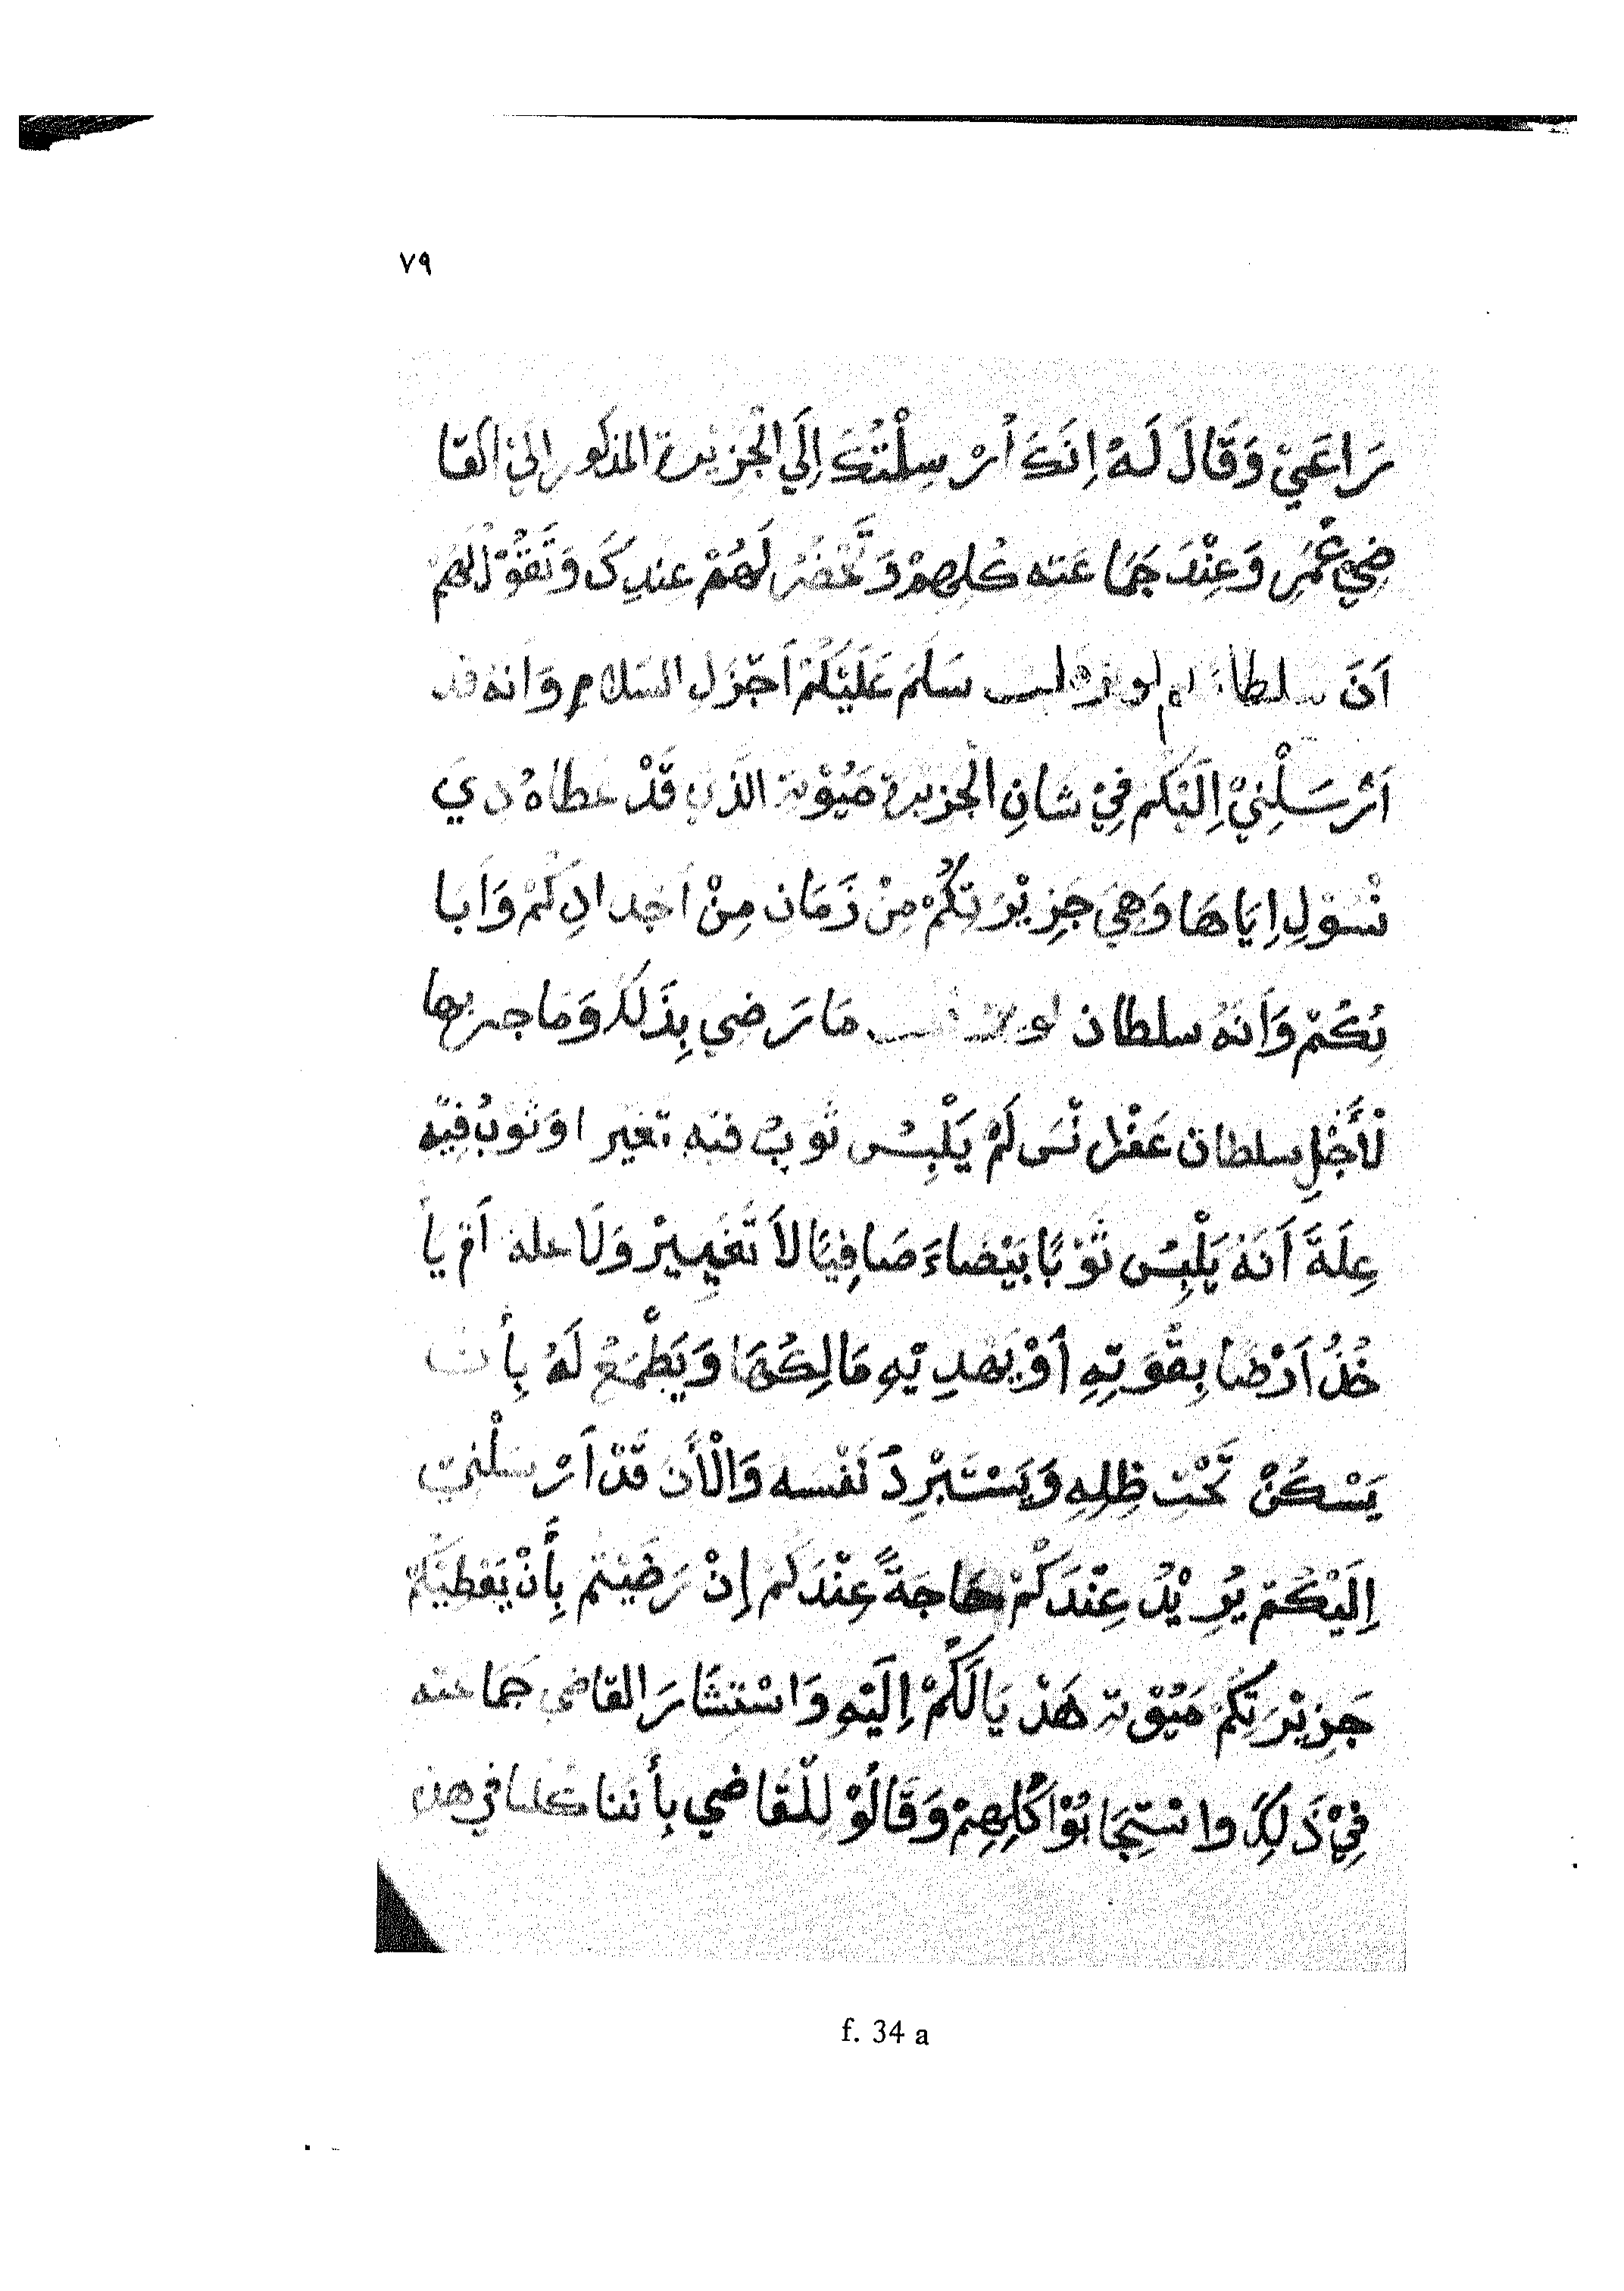 ٧٩
رَاعَيْ وَقَالَ لَهُ اِنَكَ اَرْسِلْتُكَ اِلَي الْجَزِيْرة المذكور اِلَيْ القَا
ضِيْ عُمَرِ وَعِنْدَ جَمَاعَته كُلِهِمْ وَتَّحْضُرُ لَهُمْ عِندِكَ وَتَقُوْلُ لَهُمْ
اَنَ سلطان سَلَمَ عَلَيْكُمْ اَجْزَلِ السَلامِ وَانهُ قد
اَرْسَلْنِيْ اِلَيْكُمْ فِيْ شانِ الْجَزيْرة مَيُوْتة الَّذِي قَدْ عطاهُ دِي
نْسُوْلِ اِيَاهَا وَهِيَ جَزِيْرَتِكُمْ مِنْ زَمَان مِنْ اَجْدادِكُمْ وَاَبَا
ئِكُمْ وَاَنَهُ سلطان مَا رَضِي بِذَلِكَ وَمَا جربها
لْأَجْلِ سلطان لَمْ يَلْبِسُ ثَوبٌ فيْهِ تغَيّر اوْ ثَوْبُ فِيْهِ
عِلَةً اَنَهُ يَلْبِسُ ثَوْبًا بَيْضَاءَ صَافِيًا لاَ تَغْيِيرْ وَلاَ عله اَمْ يأ
خُذُ اَرْضًا بِقُوَتِهِ اَوْ يَهْدِيْهِ مَالِكُهَا وَيَطْمَعُ لَهُ بِأَن
يَسْكُنْ تَحْتِ ظِلِهِ وَيَسْتَبْرِدُ نَفْسه وَالْأَن قَدْ اَرْسَلْنِي
اِلَيْكُمْ يُرِيْدُ عِنْدَكُمْ حَاجَةً عِنْدَكُمْ اِنْ رَضَيْتُم بِأَنْ يَعْطِيْكُمْ
جَزِيْرَتِكُمْ مَيُوْتة هَذ يَالَكُمْ اِلَيْهِ وَاسْتِشَارَ القاضي جَمَاعته
فِيْ ذَلِكَ واسْتِجَابُوْا كُلِهِمْ وَقَالُوْ لِلْقَاضِي بِأَننا كُلنا في هذ
f. 34 a